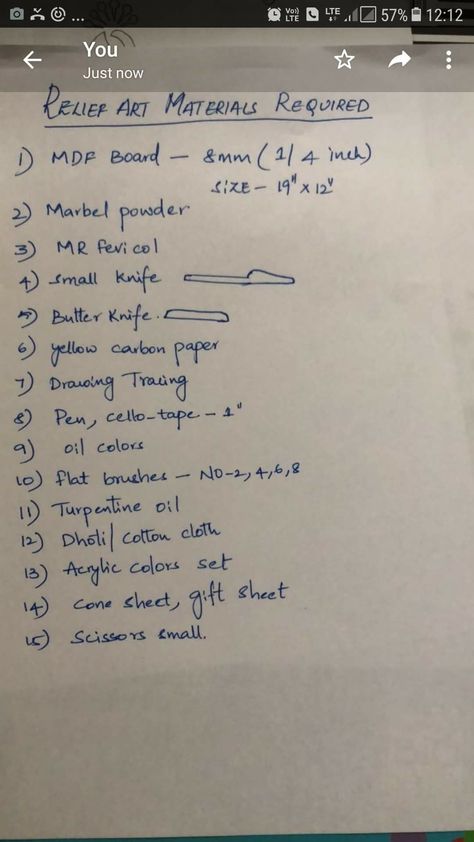 57% 12:12
You
Just now
RELIEF ART MATERIALS REQUIRED
1) MDF Board - 8mm (1/4 inch)
SIZE - 19" x 12"
2) Marbel powder
3) MR fevicol
4) Small Knife
5) Butter Knife.
6) yellow carbon paper
7) Drawing Tracing
8) Pen, cello-tape - 1"
9) oil colors
10) flat brushes - NO-2,4,6,8
11) Turpentine oil
12) Dhoti/cotton cloth
13) Acrylic colors set
14) cone sheet, gift sheet
15) Scissors small.